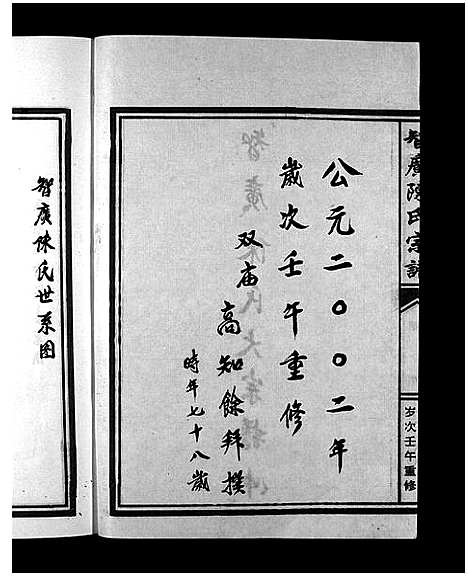 智廣陳氏宗譜
岁次壬午重修
公元二〇〇二年
歲次壬午重修
双庙
高知餘拜撰
時年七十八歲
智廣陳氏世系图